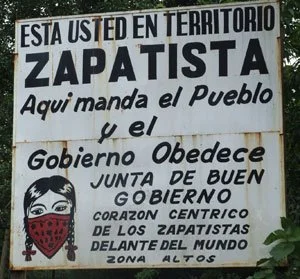 ESTA USTED EN TERRITORIO
ZAPATISTA
Aqui manda el Pueblo
y el
Gobierno Obedece
JUNTA DE BUEN
GOBIERNO
CORAZON CENTRICO
DE LOS ZAPATISTAS
DELANTE DEL MUNDO
ZONA ALTOS